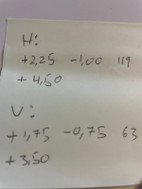 H:
+2,25 -1,00 119
+4,50
V:
+1,75 -0,75 63
+3,50